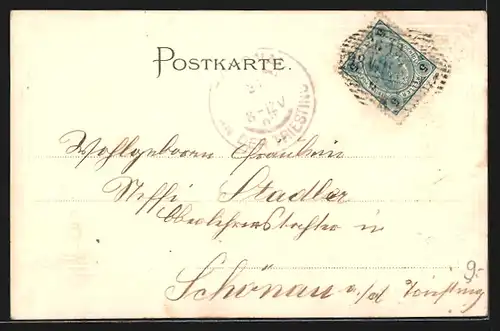 POSTKARTE.
AN DER TRIESTING
Wohlgeboren Fräulein
Steffi Stadler
Oberlehrerstochter in
Schönau a./d Triesting
9.-